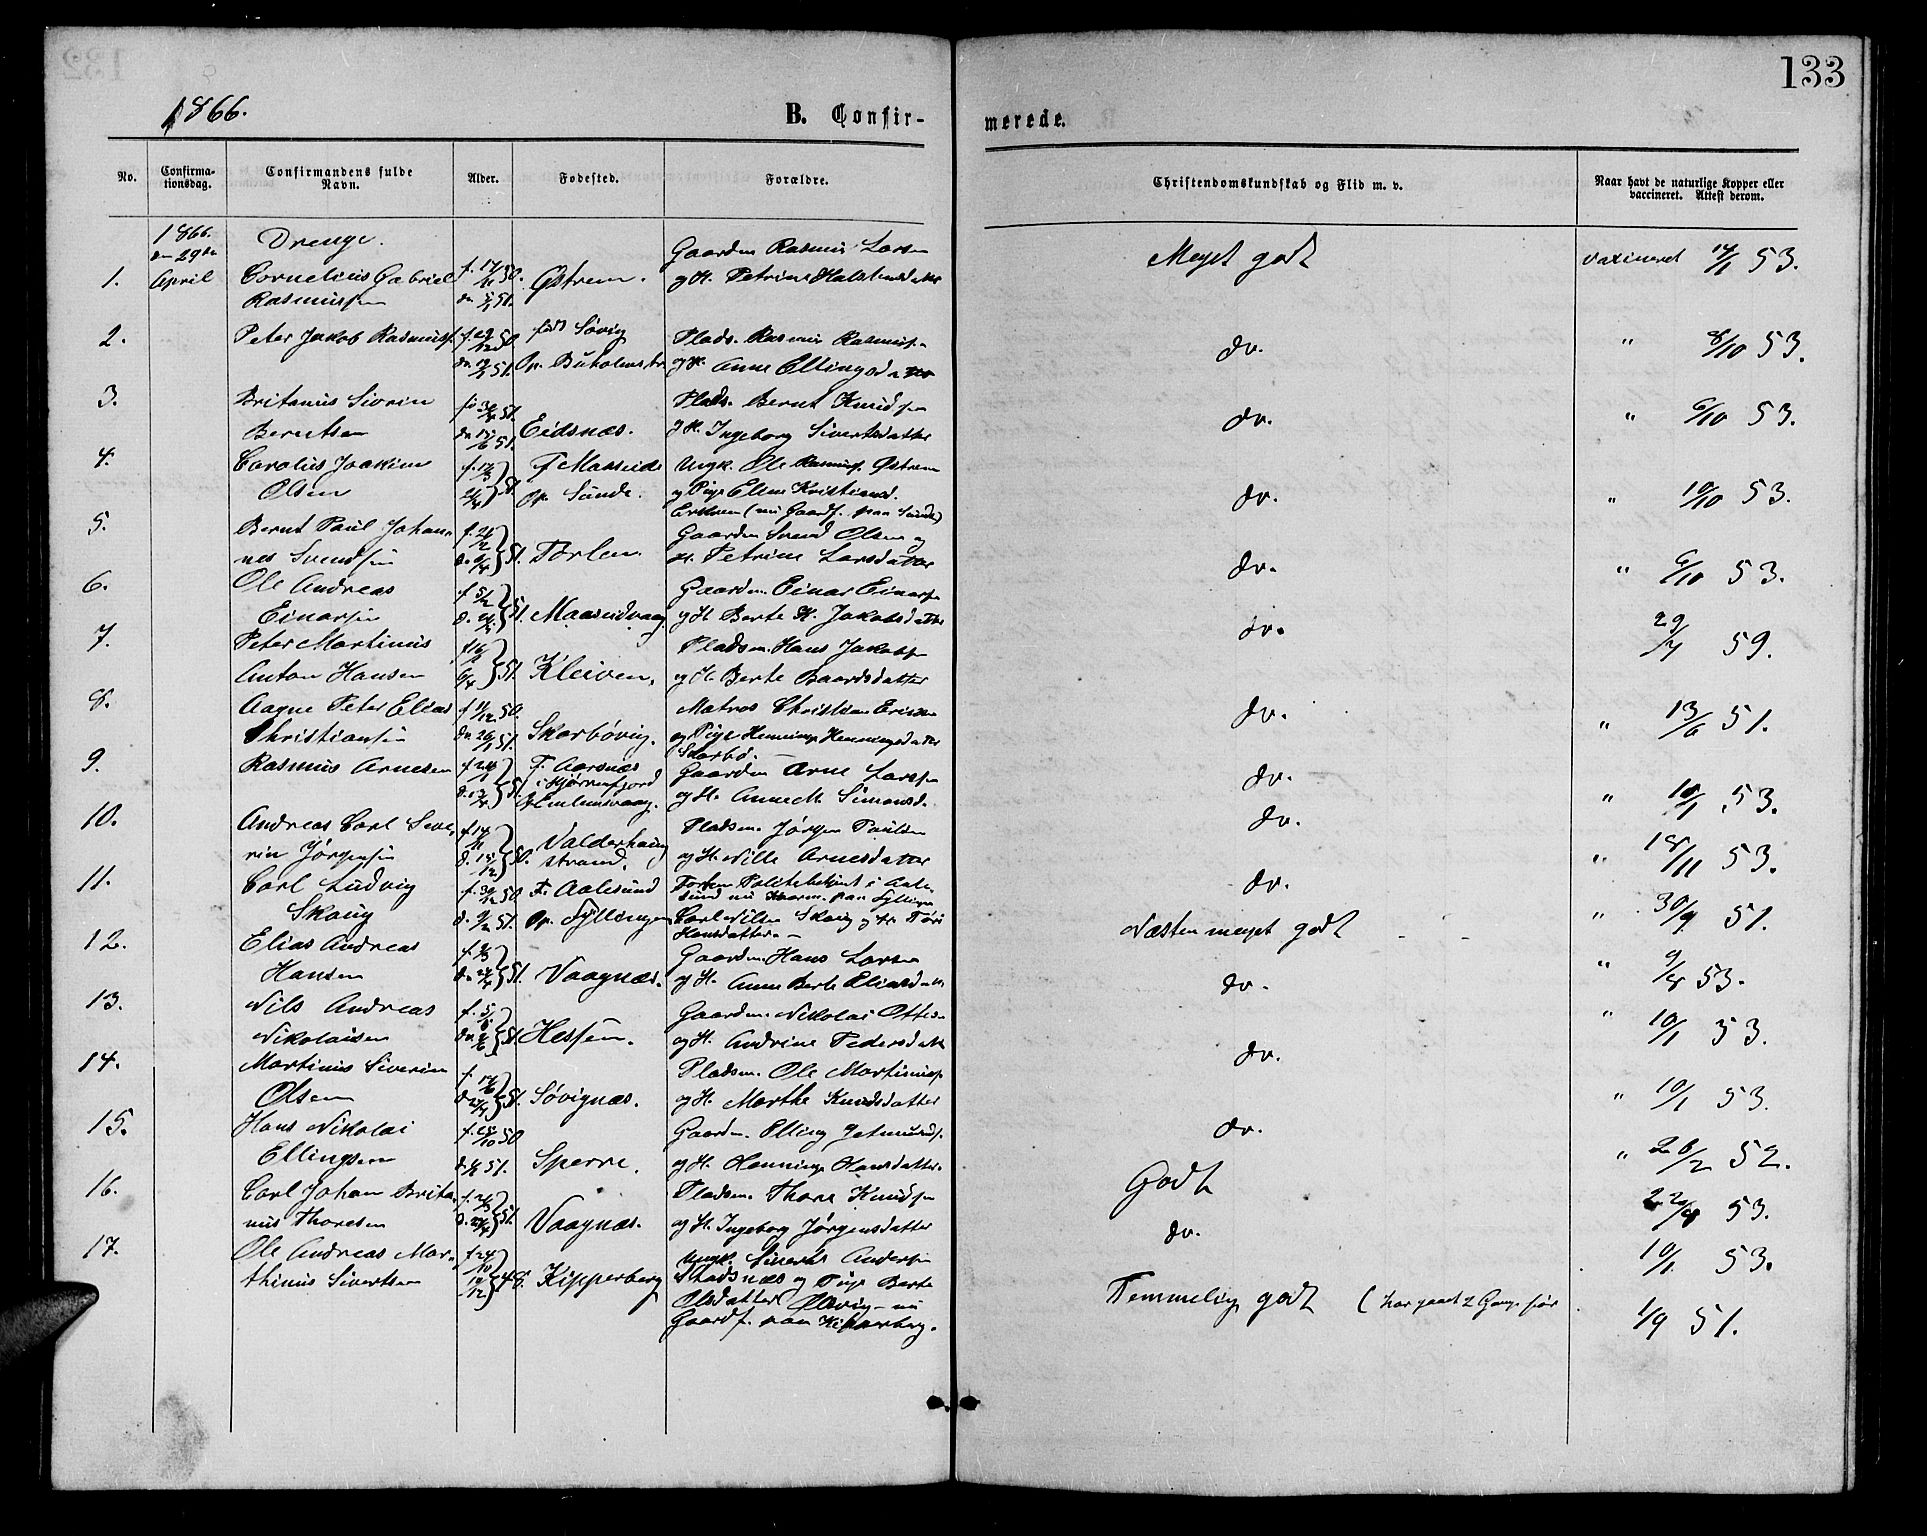 133
1866.
B. Confir-
merede.
No.
Confirma-
tionsdag.
Confirmandens fulde
Navn.
Alder.
Fødested.
Forældre.
Christendomskundskab og Flid m. v.
Naar havt de naturlige Kopper eller
vaccineret. Attest derom.
1866.
29de
April
Drenge.
1. Cornelius Gabriel
Rasmussen
Østrem.
Gaardm Rasmus Larsen
og H. Petrine
Meget godt
vaxineret 14/1 53.
2. Peter Jakob Rasmuss.
f. 29/12 50
født Søvig
Op. Buholmstr
Plads. Rasmus Rasmuss.
og H. Anne Ellingsd
do.
" 8/10 53.
3. Britanus Sivrin
Berntsen
Eidsnæs.
Plads. Bernt Knudsen
H. Ingeborg Sivertsdatter
do.
" 6/10 53.
4. Carolus Joakim
Olsen
Op. Sunde.
Ungk. Ole Rasmuss. Østrem
og Pige Elen Kristiansd.
(nu Gaardf. paa Sunde)
do.
" 10/10 53.
5. Bernt Paul Johan-
nes Svendsen
51.
Gaardm Svend Olsen og
H. Petrine Larsdatter
do.
" 6/10 53.
6. Ole Andreas
Einarsen
f. 5/2
51. Maaseidvaag
Gaardm. Einar Einarsen
og H Berte K. Jakobsdatter
do.
29/7 59.
7. Peter Martinus
Anton Hansen
6/4 51. Kleiven.
Pladsm. Hans Jakobsen
og H. Berte Baardsdatter
do.
" 13/6 51.
8. Aagne Peter Elias
Christiansen
f 11/12 50.
Skarbøvig.
Matros Christian
og Pige
Skarbø.
do.
" 10/1 53.
9. Rasmus Arnesen
F. Aarsnæs
i Hjørrenfjord
Gaardm Arne Larsen
og H. Anne M. Simonsd.
do.
" 18/11 53.
10. Andreas Carl Seve-
rin Jørgensen
f. 14/11
50. Valderhaug
strand.
Pladsm. Jørgen Paulsen
og H. Nille Arnesdatter
do.
" 30/9 51.
11. Carl Ludvig
Skoug
F. Aalesund
Op. Fyllingen
Politibetjent i Aale-
sund nu paa Fyllingen
Carl Nilsen Skoug og H.
Hansdatter. -
Næsten meget godt - -
" 9/4 53.
12. Elias Andreas
Hansen
51. Vaagnæs.
Gaardm. Hans Larsen
og H. Anne Berte
do.
" 10/1 53.
13. Nils Andreas
Nikolaisen
51. Hessen.
Gaardm. Nikolai
og H. Andrine Pedersdatt
do.
" 10/1 53.
14. Martinus Siverin
Olsen
51. Søvignæs.
Pladsm. Ole
og H. Marthe Knudsdatter
do.
" 26/2 52.
15. Hans Nikolai
Ellingsen
f. 25/10 50
51. Sperre.
Gaardm. Elling
og H. Henninge Hansdatter.
Godt
22/4 53.
16. Carl Johan Brita-
nus Thoresen
51. Vaagnæs.
Pladsm. Thore Knudsen
og H. Ingeborg Jørgensdatter
do.
10/1 53.
17. Ole Andreas Mar-
thinus Sivertsen
f. 24/10
19/12 48. Kipperberg
Ungk. Sivert Andersen
Stadsnæs og Pige Berte
Olsdatter - nu
Gaardf. paa Kipperberg.
Temmelig godt (har gaaet 2 Gange før
1/9 51.